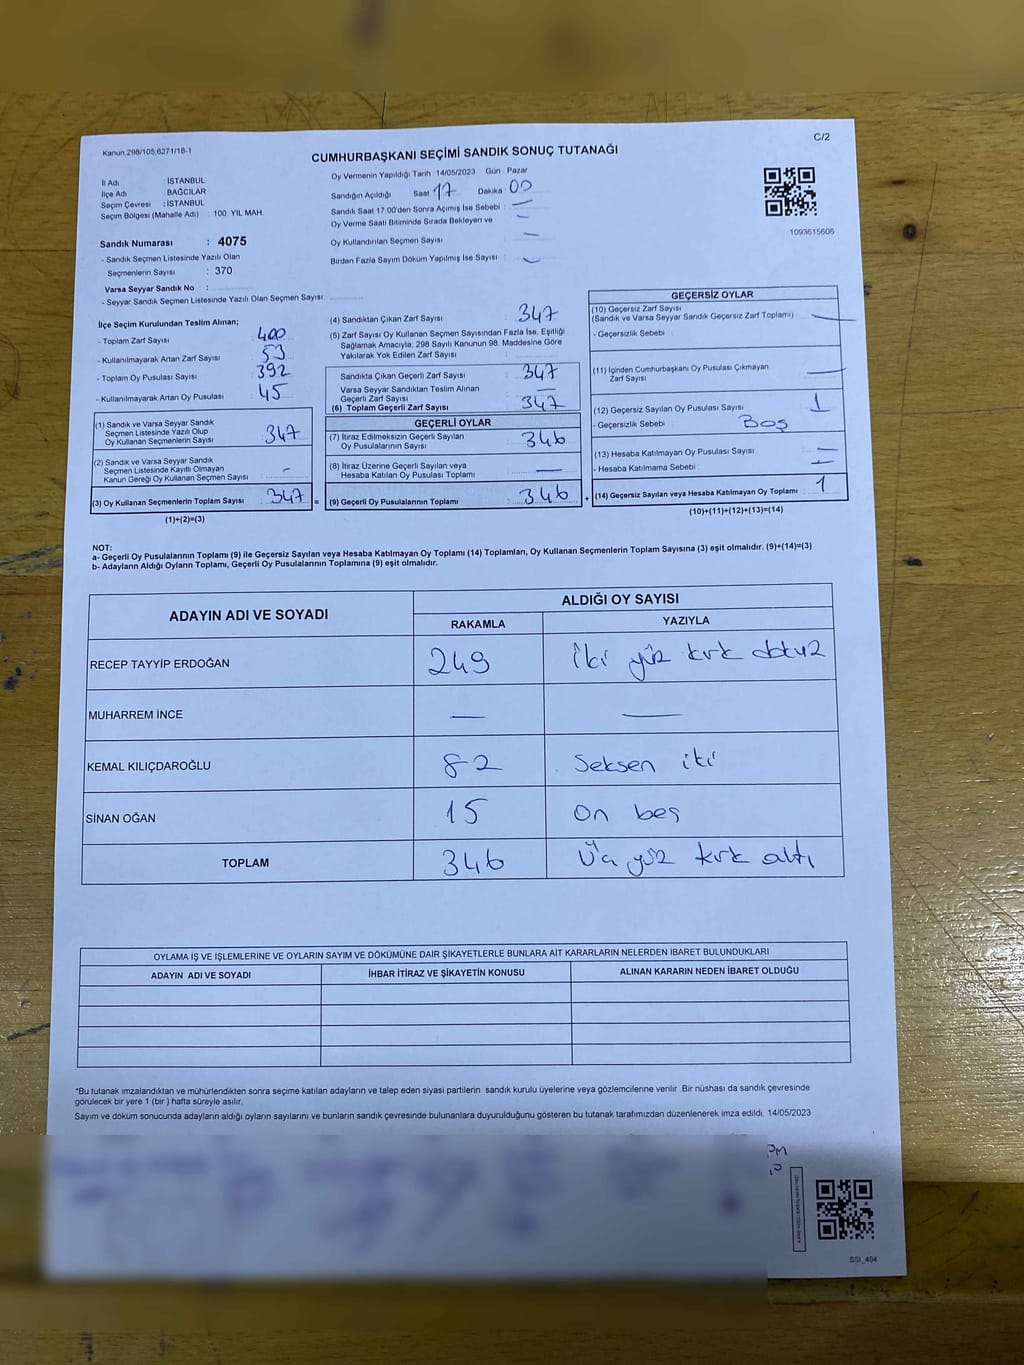 Kanun 298/105,6271/18-1
C/2
CUMHURBAŞKANI SEÇİMİ SANDIK SONUÇ TUTANAĞI
İl Adı : İSTANBUL
İlçe Adı : BAĞCILAR
Seçim Çevresi : İSTANBUL
Seçim Bölgesi (Mahalle Adı) : 100. YIL MAH.
Sandık Numarası : 4075
- Sandık Seçmen Listesinde Yazılı Olan
Seçmenlerin Sayısı : 370
Varsa Seyyar Sandık No :
- Seyyar Sandık Seçmen Listesinde Yazılı Olan Seçmen Sayısı
Oy Vermenin Yapıldığı Tarih : 14/05/2023 Gün : Pazar
Sandığın Açıldığı Saat 17 Dakika 00
Sandık Saat 17:00'den Sonra Açımış İse Sebebi : —
Oy Verme Saati Bitiminde Sırada Bekleyen ve —
Oy Kullandırılan Seçmen Sayısı —
Birden Fazla Sayım Döküm Yapılmış İse Sayısı —
1093615606
İlçe Seçim Kurulundan Teslim Alınan;
- Toplam Zarf Sayısı : 400
- Kullanılmayarak Artan Zarf Sayısı : 53
- Toplam Oy Pusulası Sayısı : 392
- Kullanılmayarak Artan Oy Pusulası : 45
(1) Sandık ve Varsa Seyyar Sandık
Seçmen Listesinde Yazılı Olup
Oy Kullanan Seçmenlerin Sayısı : 347
(2) Sandık ve Varsa Seyyar Sandık
Seçmen Listesinde Kayıtlı Olmayan
Kanun Gereği Oy Kullanan Seçmen Sayısı : -
(3) Oy Kullanan Seçmenlerin Toplam Sayısı : 347 =
(1)+(2)=(3)
(4) Sandıktan Çıkan Zarf Sayısı : 347
(5) Zarf Sayısı Oy Kullanan Seçmen Sayısından Fazla İse, Eşitliği
Sağlamak Amacıyla, 298 Sayılı Kanunun 98. Maddesine Göre
Yakılarak Yok Edilen Zarf Sayısı
Sandıkta Çıkan Geçerli Zarf Sayısı : 347
Varsa Seyyar Sandıktan Teslim Alınan
Geçerli Zarf Sayısı : —
(6) Toplam Geçerli Zarf Sayısı : 347
GEÇERLİ OYLAR
(7) İtiraz Edilmeksizin Geçerli Sayılan
Oy Pusulalarının Sayısı : 346
(8) İtiraz Üzerine Geçerli Sayılan veya
Hesaba Katılan Oy Pusulası Toplamı : —
(9) Geçerli Oy Pusulalarının Toplamı : 346 +
GEÇERSİZ OYLAR
(10) Geçersiz Zarf Sayısı
(Sandık ve Varsa Seyyar Sandık Geçersiz Zarf Toplamı) : —
- Geçersizlik Sebebi :
(11) İçinden Cumhurbaşkanı Oy Pusulası Çıkmayan
Zarf Sayısı —
(12) Geçersiz Sayılan Oy Pusulası Sayısı : 1
- Geçersizlik Sebebi : Boş
(13) Hesaba Katılmayan Oy Pusulası Sayısı : —
- Hesaba Katılmama Sebebi : —
(14) Geçersiz Sayılan veya Hesaba Katılmayan Oy Toplamı : 1
(10)+(11)+(12)+(13)=(14)
NOT:
a- Geçerli Oy Pusulalarının Toplamı (9) ile Geçersiz Sayılan veya Hesaba Katılmayan Oy Toplamı (14) Toplamları, Oy Kullanan Seçmenlerin Toplam Sayısına (3) eşit olmalıdır. (9)+(14)=(3)
b- Adayların Aldığı Oyların Toplamı, Geçerli Oy Pusulalarının Toplamına (9) eşit olmalıdır.
ADAYIN ADI VE SOYADI
ALDIĞI OY SAYISI
RAKAMLA YAZIYLA
RECEP TAYYİP ERDOĞAN 249 iki yüz kırk dokuz
MUHARREM İNCE — —
KEMAL KILIÇDAROĞLU 82 Seksen iki
SİNAN OĞAN 15 On beş
TOPLAM 346 Üç yüz kırk altı
OYLAMA İŞ VE İŞLEMLERİNE VE OYLARIN SAYIM VE DÖKÜMÜNE DAİR ŞİKAYETLERLE BUNLARA AİT KARARLARIN NELERDEN İBARET BULUNDUKLARI
ADAYIN ADI VE SOYADI İHBAR İTİRAZ VE ŞİKAYETİN KONUSU ALINAN KARARIN NEDEN İBARET OLDUĞU
*Bu tutanak imzalandıktan ve mühürlendikten sonra seçime katılan adayların ve talep eden siyasi partilerin sandık kurulu üyelerine veya gözlemcilerine verilir. Bir nüshası da sandık çevresinde
görülecek bir yere 1 (bir ) hafta süreyle asılır.
Sayım ve döküm sonucunda adayların aldığı oyların sayılarını ve bunların sandık çevresinde bulunanlara duyurulduğunu gösteren bu tutanak tarafımızdan düzenlenerek imza edildi. 14/05/2023
SSI_404